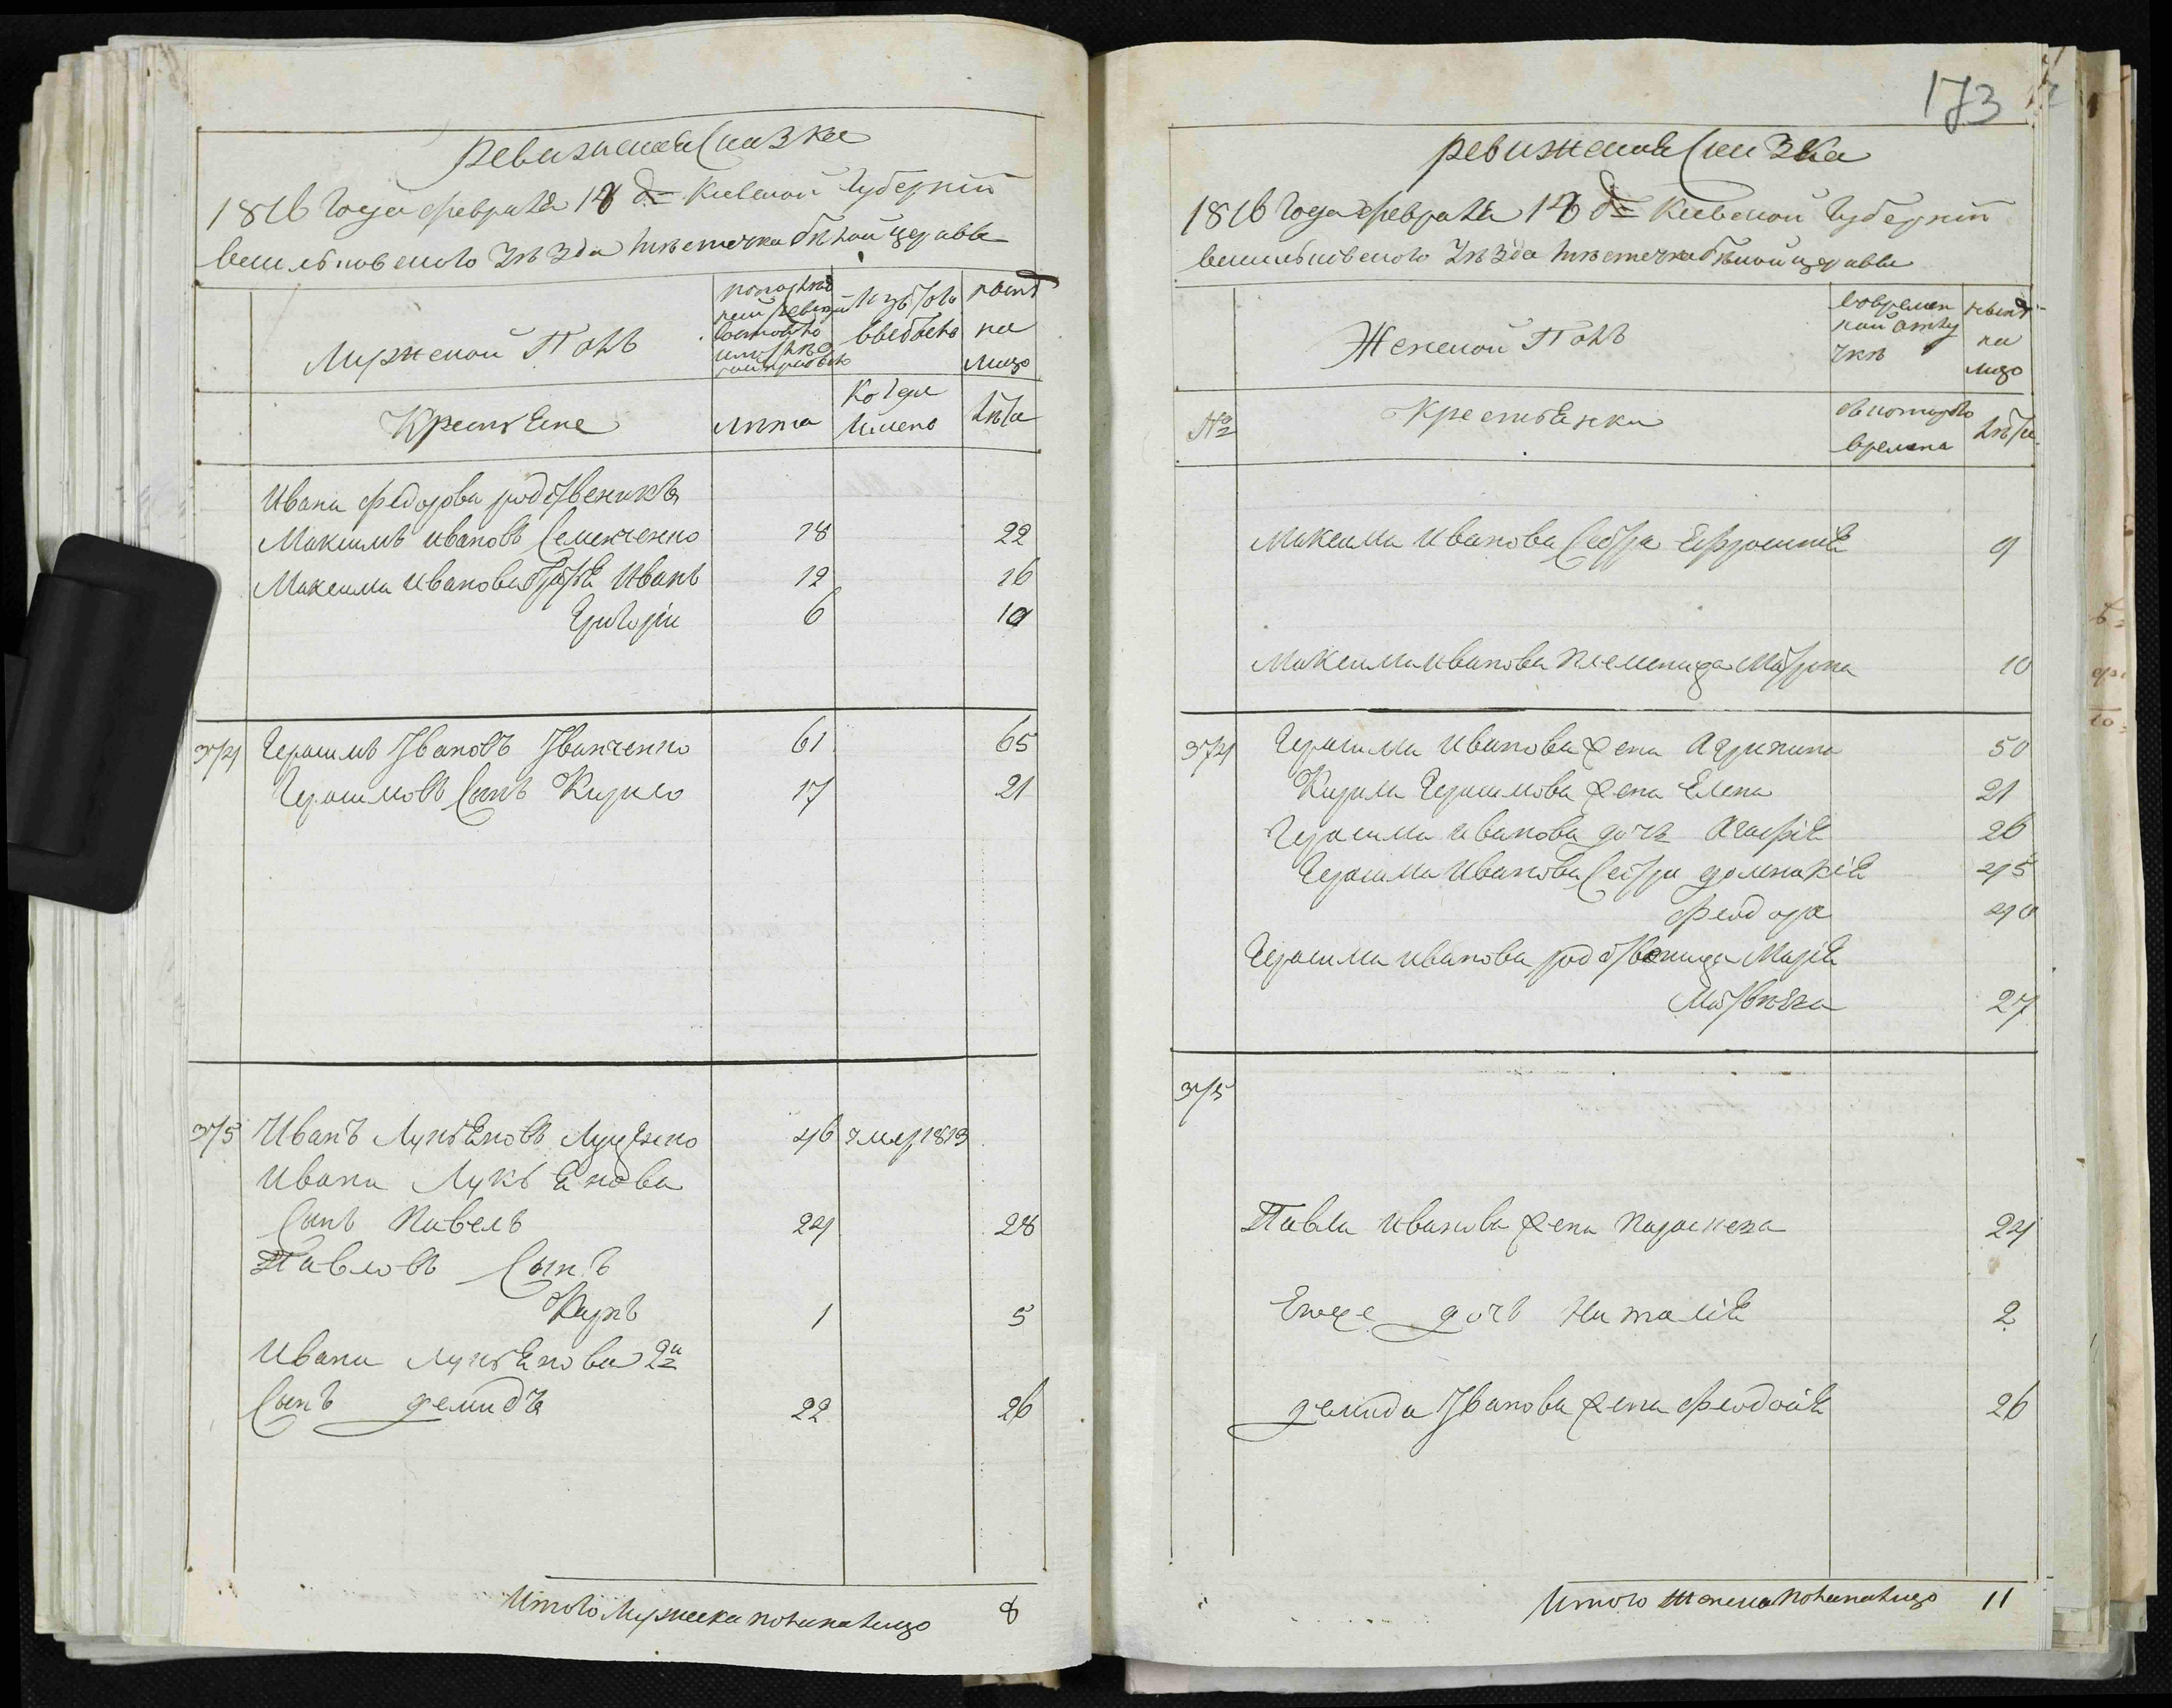 ревизская Сказка
1816 Года февраля 18 д= Киевской Губернiи
васильковского Уѣзда мѣстечка бѣлой церквѣ
Мужеской Полъ
по последней ревизiи состояло и после оной прибыло
изъ того выбыло
ныне на лицо
Крестьяне
лета
Когда имено
лѣта
Ивана федорова родственикъ
Максимъ ивановъ Семенченко 18 22
Максима иванова братья Иванъ 12 16
Григорiй 6 10
374 Герасимъ Ивановъ Иванченко 61 65
Герасимовъ Сынъ Кирило 17 21
375 Иванъ Лукьяновъ Луценко 46 умер 1813
Ивана Лукьянова
Сынъ Павелъ 24 28
Павловъ Сынъ
Карпъ 1 5
Ивана Лукьянова 2й
Сынъ демидъ 22 26
Итого Мужеска пола налицо 8
173
ревизская Сказка
1816 Года февраля 18 д= Киевской Губернiи
васильковского Уѣзда мѣстечка бѣлой церквѣ
Женской Полъ
во временной отлучкѣ
ныне на лицо
№
Крестьянки
съ котораго времена
лѣта
Максима Иванова Сестра Ефросинiя 9
Максима иванова племеница Матрона 10
374 Герасима Иванова жена Агрипина 50
Кирила Герасимова жена Елена 21
Герасима иванова дочь Агафiя 26
Герасима Иванова Сестра доминикiя 45
Феодора 40
Герасима иванова родственица Марiя
Матвѣева 27
375
Павла иванова жена Параскева 24
Егоже дочь Наталiя 2
демида Иванова жена Феодосiя 26
Итого Женска пола налицо 11